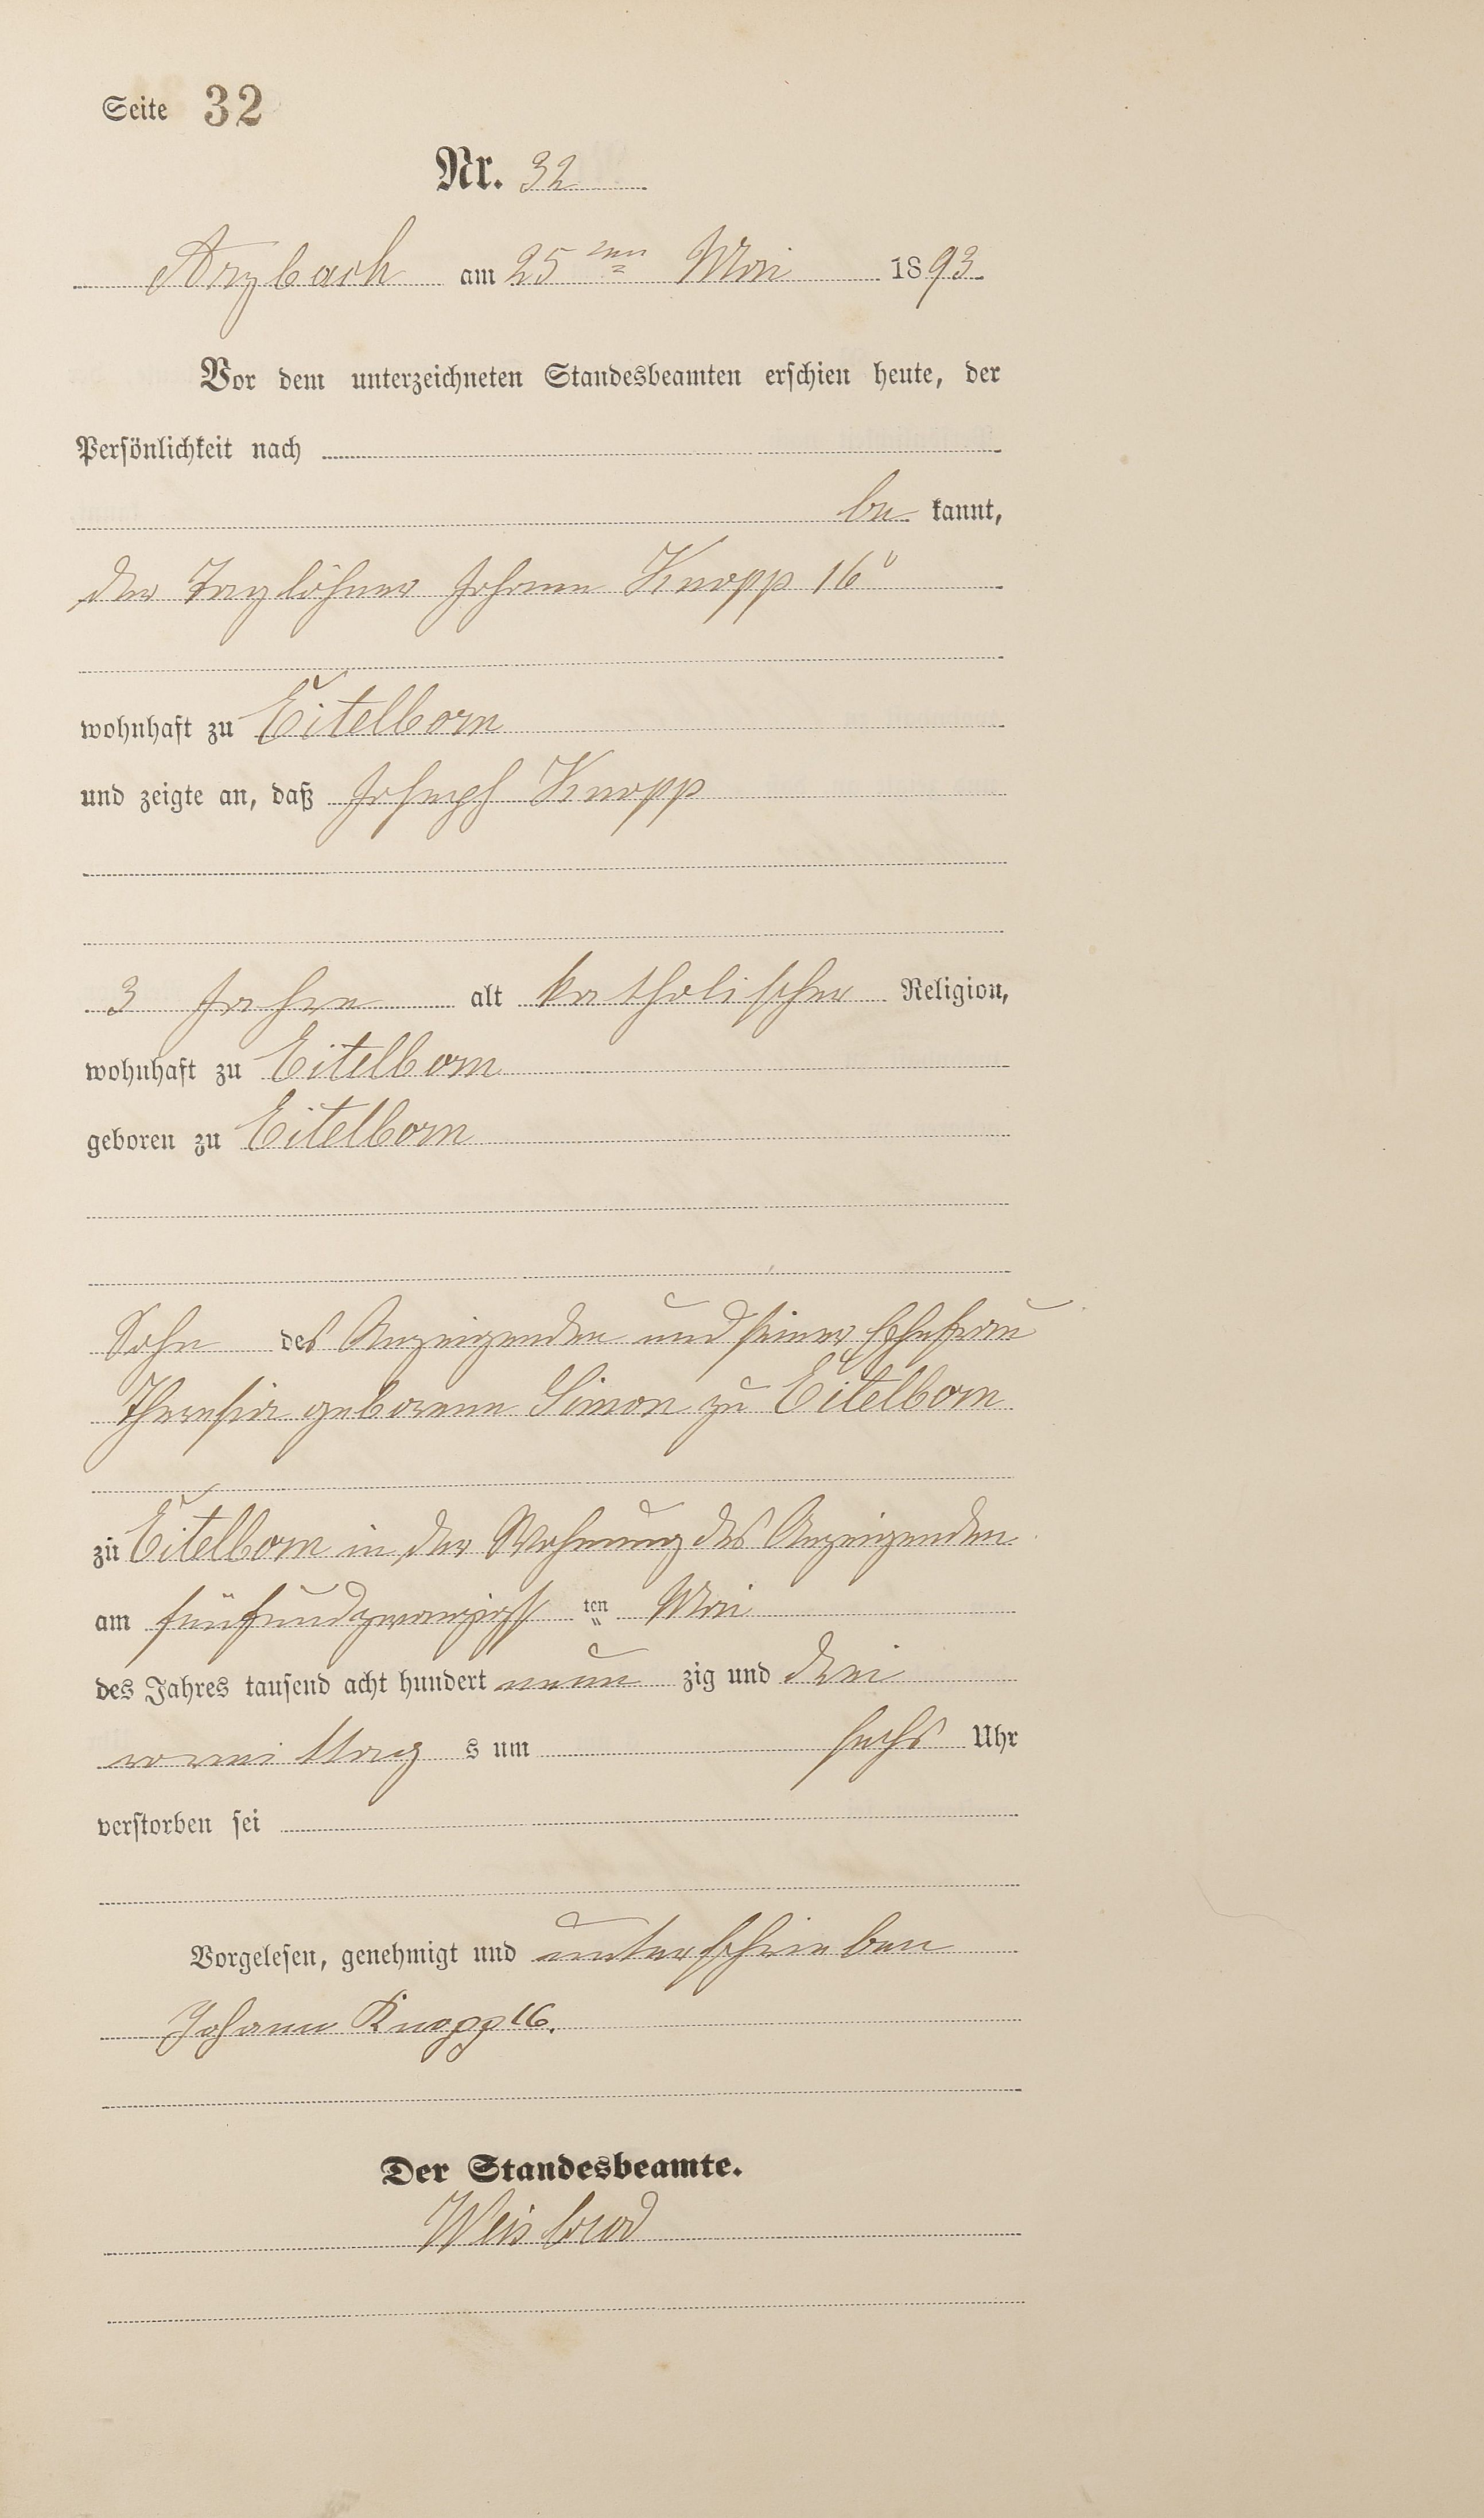 Seite 32
Nr. 32
Arzbach am 25ten Mai 1893
Vor dem unterzeichneten Standesbeamten erschien heute, der
Persönlichkeit nach
be kannt,
der Taglöhner Johann Knopp 16r
wohnhaft zu Eitelborn
und zeigte an, daß Joseph Knopp
3 Jahre alt katholischer Religion,
wohnhaft zu Eitelborn
geboren zu Eitelborn
Sohn des Anzeigenden und seiner Ehefrau
Theresia geborene Simon zu Eitelborn
zu Eitelborn in der Wohnung des Anzeigenden
am fünfundzwanzigst ten Mai
des Jahres tausend acht hundert neun zig und drei
vormittag s um sechs Uhr
verstorben sei
Vorgelesen, genehmigt und unterschrieben
Johann Knopp 16.
Der Standesbeamte.
Weisbrod